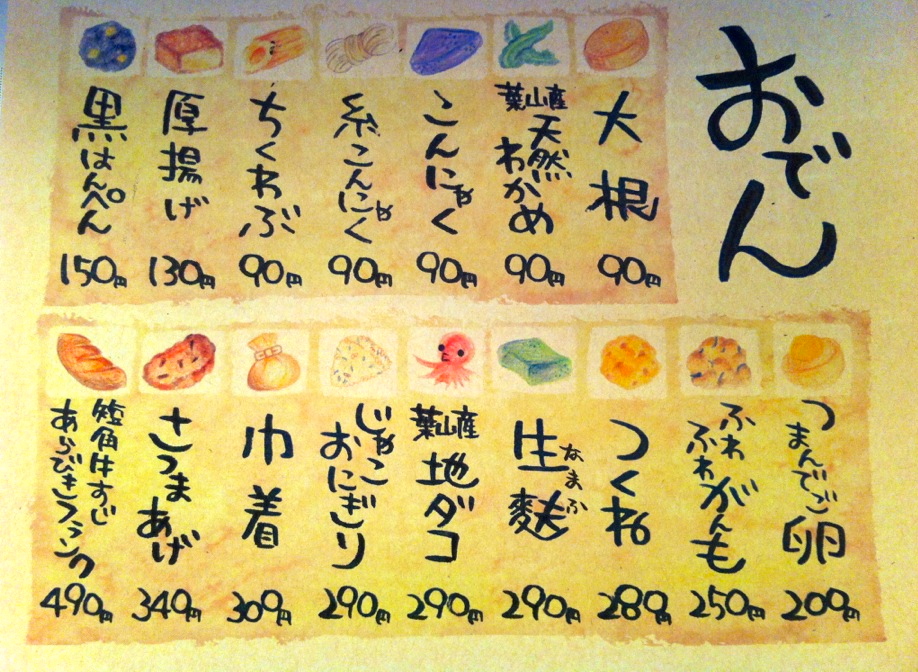 おでん
大根
90円
葉山産
天然
わかめ
90円
こんにゃく
90円
糸こんにゃく
90円
ちくわぶ
90円
厚揚げ
130円
黒はんぺん
150円
つまんでご卵
200円
ふわふわがんも
250円
つくね
280円
生麩
なまふ
290円
葉山産
地ダコ
290円
じゃこ
おにぎり
290円
巾着
300円
さつまあげ
340円
短角牛すじ
あらびきフランク
490円